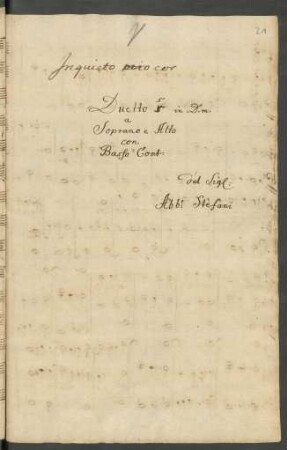 21
Inquieto mio cor
Duetto in Dm
a
Soprano e Alto
con
Basso Cont
del Sigl
Abbe Stefani